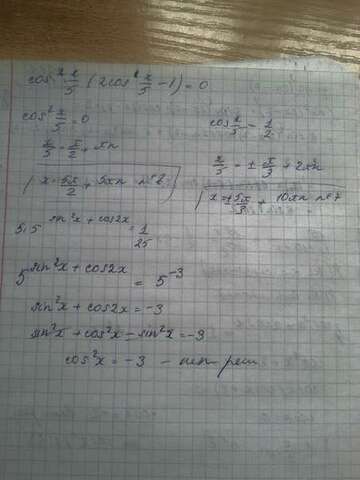 cos² x/5 (2cos² x/5 - 1) = 0
cos² x/5 = 0
x/5 = π/2 + πn
x = 5π/2 + 5πn n∈Z
cos x/5 = 1/2
x/5 = ± π/3 + 2πn
x = ±5π/3 + 10πn n∈Z
5·5^(sin²x + cos2x) = 1/25
5^(sin²x + cos2x) = 5^(-3)
sin²x + cos2x = -3
sin²x + cos²x - sin²x = -3
cos²x = -3 - нет реш